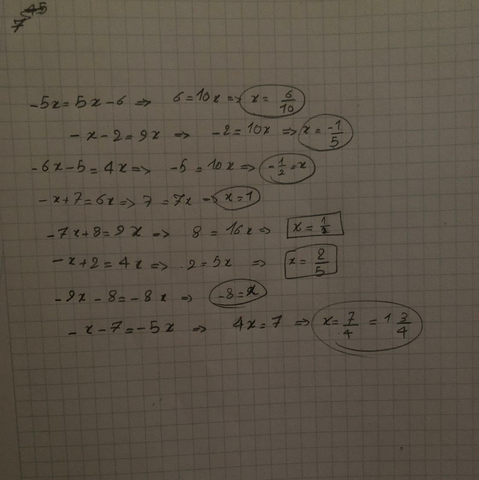 7
-5x=5x-6 ⇒ 6=10x⇒ x= 6/10
-x-2=9x ⇒ -2=10x⇒ x=-1/5
-6x-5=4x⇒ -5=10x⇒ -1/2=x
-x+7=6x⇒ 7=7x⇒ x=1
-7x+8=9x ⇒ 8=16x⇒ x=1/2
-x+2=4x ⇒ 2=5x ⇒ x=2/5
-9x-8=-8x ⇒ -8=x
-x-7=-5x ⇒ 4x=7 ⇒ x=7/4=1 3/4